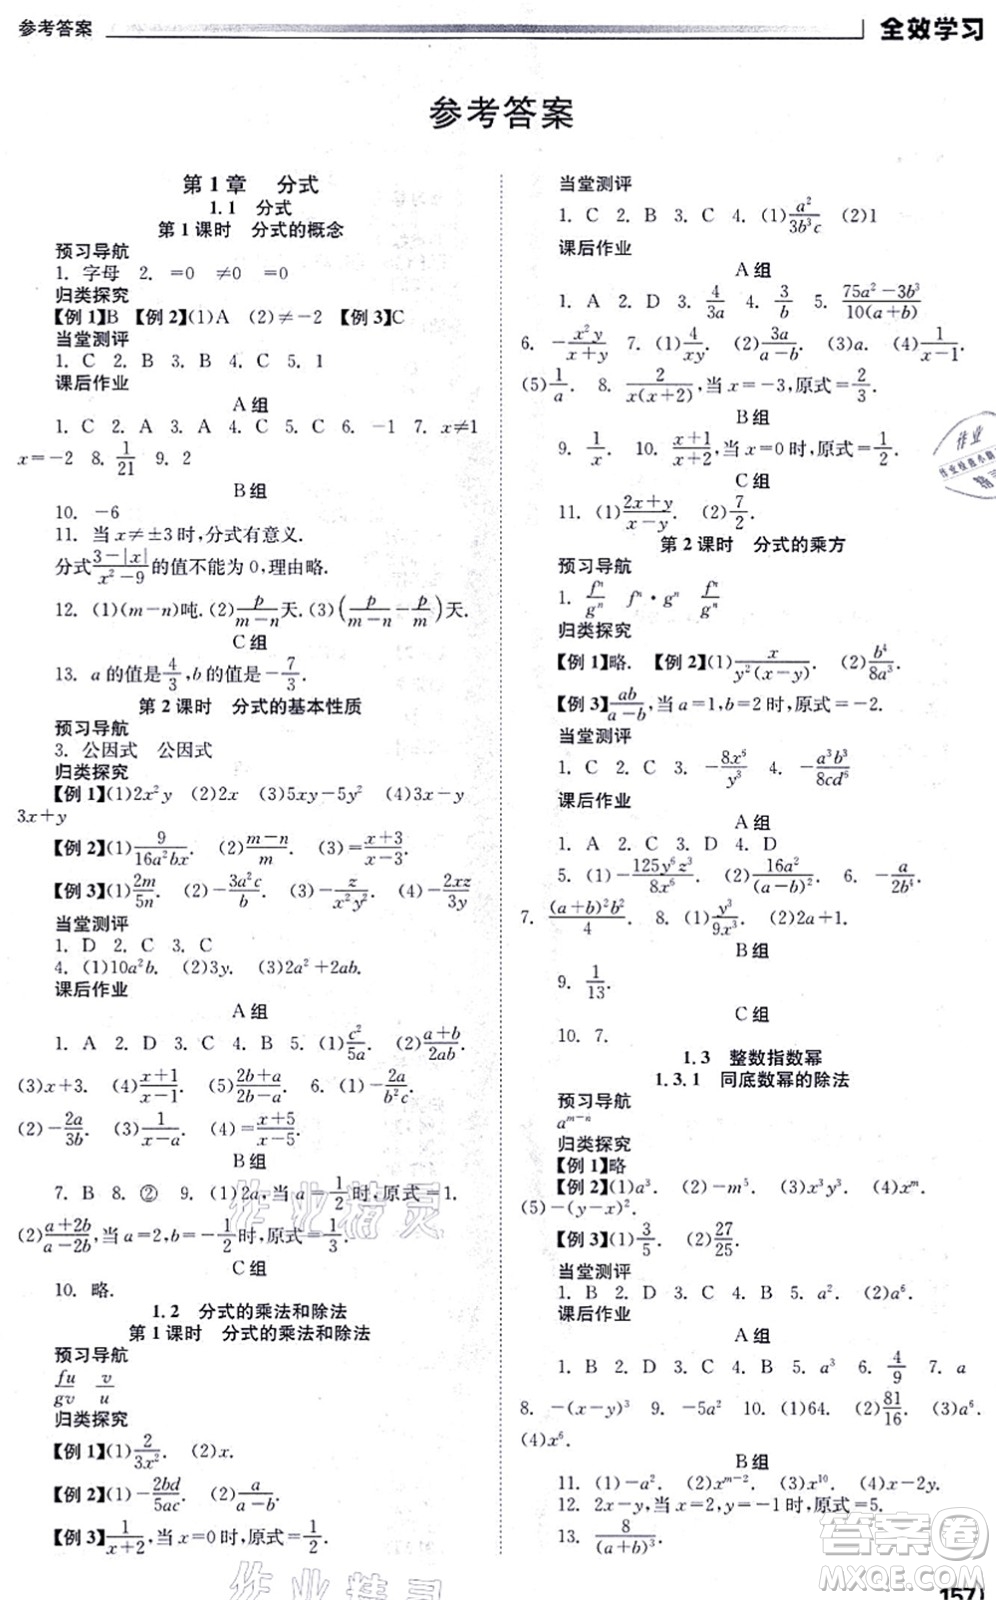 参考答案
全效学习
参考答案
第1章 分式
1.1 分式
第1课时 分式的概念
预习导航
1. 字母 2. =0 ≠0 =0
归类探究
【例1】B 【例2】(1)A (2)≠-2 【例3】C
当堂测评
1. C 2. B 3. B 4. C 5. 1
课后作业
A组
1. C 2. A 3. A 4. C 5. C 6. -1 7. x≠1
x=-2 8. 1/21 9. 2
B组
10. -6
11. 当x≠±3时,分式有意义.
分式(3-|x|)/(x²-9)的值不能为0,理由略.
12. (1)(m-n)吨. (2)p/(m-n)天. (3)(p/(m-n)-p/m)天.
C组
13. a的值是4/3,b的值是-7/3.
第2课时 分式的基本性质
预习导航
3. 公因式 公因式
归类探究
【例1】(1)2x²y (2)2x (3)5xy-5y² (4)3x-y
3x+y
【例2】(1)9/(16a²bx). (2)(m-n)/m. (3)(x+3)/(x-3).
【例3】(1)2m/5n. (2)-3a²c/b (3)-z/(x²y²). (4)-2xz/3y
当堂测评
1. D 2. C 3. C
4. (1)10a²b. (2)3y. (3)2a²+2ab.
课后作业
A组
1. A 2. D 3. C 4. B 5. (1)c²/5a. (2)(a+b)/2ab.
(3)x+3. (4)(x+1)/(x-1). (5)(2b+a)/(2b-a). 6. (1)-2a/(b²c).
(2)-2a/3b. (3)1/(x-a). (4)(x+5)/(x-5).
B组
7. B 8. ② 9. (1)2a,当a=1/2时,原式=1.
(2)(a+2b)/(a-2b),当a=2,b=-1/2时,原式=1/3.
C组
10. 略.
1.2 分式的乘法和除法
第1课时 分式的乘法和除法
预习导航
fu/gv v/u
归类探究
【例1】(1)2/(3x²). (2)x.
【例2】(1)-2bd/5ac. (2)a/(a-b).
【例3】1/(x+2),当x=0时,原式=1/2.
当堂测评
1. C 2. B 3. C 4. (1)a²/(3b³c) (2)1
课后作业
A组
1. A 2. D 3. 4/3a 4. 3/b 5. (75a²-3b³)/(10(a+b))
6. -x²y/(x+y) 7. (1)4/xy. (2)3a/(a-b). (3)a. (4)1/(x-1).
(5)1/a. 8. 2/(x(x+2)),当x=-3,原式=2/3.
B组
9. 1/x. 10. (x+1)/(x+2),当x=0时,原式=1/2.
C组
11. (1)(2x+y)/(x-y). (2)7/2.
第2课时 分式的乘方
预习导航
1. fⁿ/gⁿ fⁿ·gⁿ fⁿ/gⁿ
归类探究
【例1】略. 【例2】(1)x/(y²(x-y)). (2)b⁴/(8a³).
【例3】ab/(a-b),当a=1,b=2时,原式=-2.
当堂测评
1. C 2. C 3. -8x⁶/y³ 4. -a³b³/(8cd⁶)
课后作业
A组
1. A 2. C 3. D 4. D
5. (1)-125y⁶z³/(8x⁶). (2)16a²/(a-b)². 6. -a/(2b⁴).
7. (a+b)²b²/4 8. (1)y³/(9x³). (2)2a+1.
B组
9. 1/13.
C组
10. 7.
1.3 整数指数幂
1.3.1 同底数幂的除法
预习导航
aᵐ⁻ⁿ
归类探究
【例1】略
【例2】(1)a³. (2)-m⁵. (3)x³y³. (4)xᵐ.
(5)-(y-x)².
【例3】(1)3/5. (2)27/25.
当堂测评
1. B 2. C 3. D 4. C 5. a². (2)a⁶.
课后作业
A组
1. B 2. D 3. D 4. B 5. a³ 6. 4/9 7. a
8. -(x-y)³ 9. -5a² 10. (1)64. (2)81/16. (3)a⁶.
(4)x⁶.
B组
11. (1)-a². (2)xᵐ⁻². (3)x¹⁰. (4)x-2y.
12. 2x-y,当x=2,y=-1时,原式=5.
13. 8/(a+b)³.
157
作业精灵
作业精灵
作业
答案圈
MXQE.COM